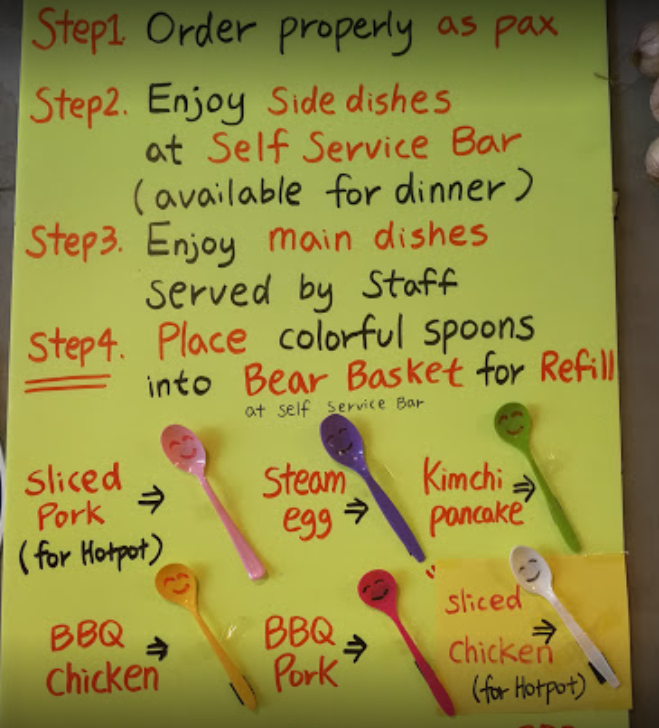 Step1. Order properly as pax
Step2. Enjoy Side dishes
at Self Service Bar
(available for dinner)
Step3. Enjoy main dishes
served by Staff
Step4. Place colorful spoons
into Bear Basket for Refill
at Self Service Bar
Sliced
Pork ⇒
(for Hotpot)
Steam
egg ⇒
Kimchi ⇒
pancake
BBQ ⇒
Chicken
BBQ ⇒
Pork
Sliced
Chicken ⇒
(for Hotpot)